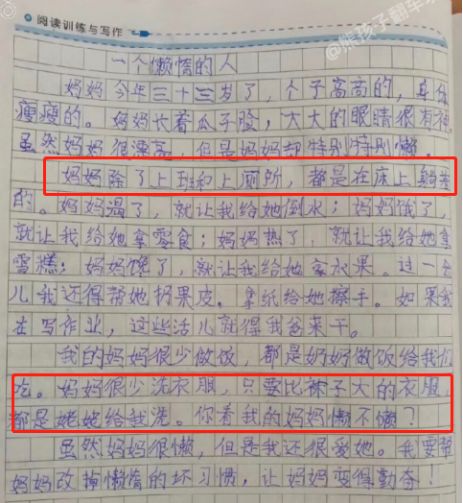 阅读训练与写作
@熊孩子翻车
一个懒惰的人
妈妈今年三十三岁了，个子高高的，身体
瘦瘦的。妈妈长着瓜子脸，大大的眼睛很有神。
虽然妈妈很漂亮，但是妈妈却特别特别懒。
妈妈除了上班和上厕所，都是在床上躺着
的。妈妈渴了，就让我给她倒水；妈妈饿了，
就让我给她拿零食；妈妈热了，就让我给她拿
雪糕；妈妈馋了，就让我给她拿水果。过一会
儿我还得帮她扔果皮。拿纸给她擦手。如果我
在写作业，这些活儿就得我爸来干。
我的妈妈很少做饭，都是奶奶做饭给我们
吃。妈妈很少洗衣服，只要比袜子大的衣服，
都是姥姥给我洗。你看我的妈妈懒不懒？
虽然妈妈很懒，但是我还很爱她。我要帮
妈妈改掉懒惰的坏习惯，让妈妈变得勤奋！